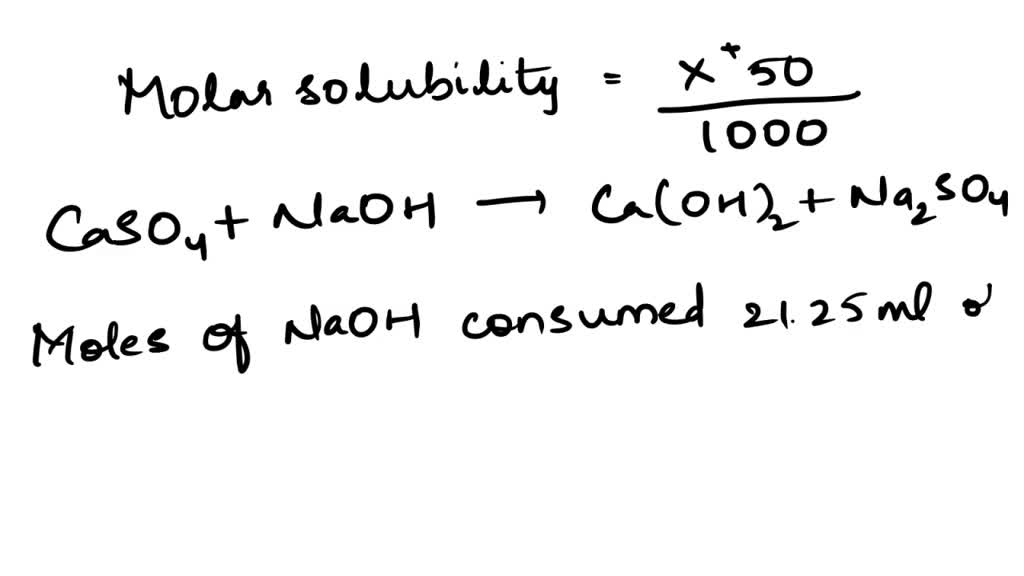 Molar solubility = x*50 / 1000
CaSO₄ + NaOH → Ca(OH)₂ + Na₂SO₄
Moles of NaOH consumed 21.25ml